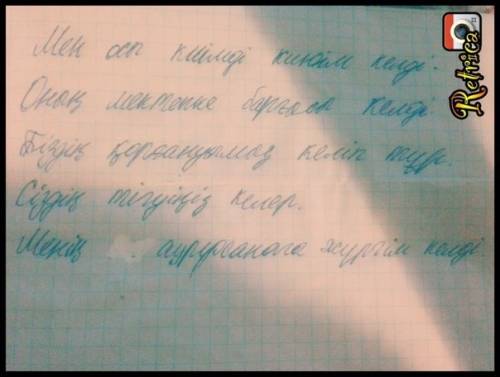 Мен осы киімді кигім келді.
Оның мектепке барғысы келді.
Біздің қорғанұымыз келіп тұр.
Сіздің тігуіңіз келер.
Менің ауруханаға жүргім келді
Retrica